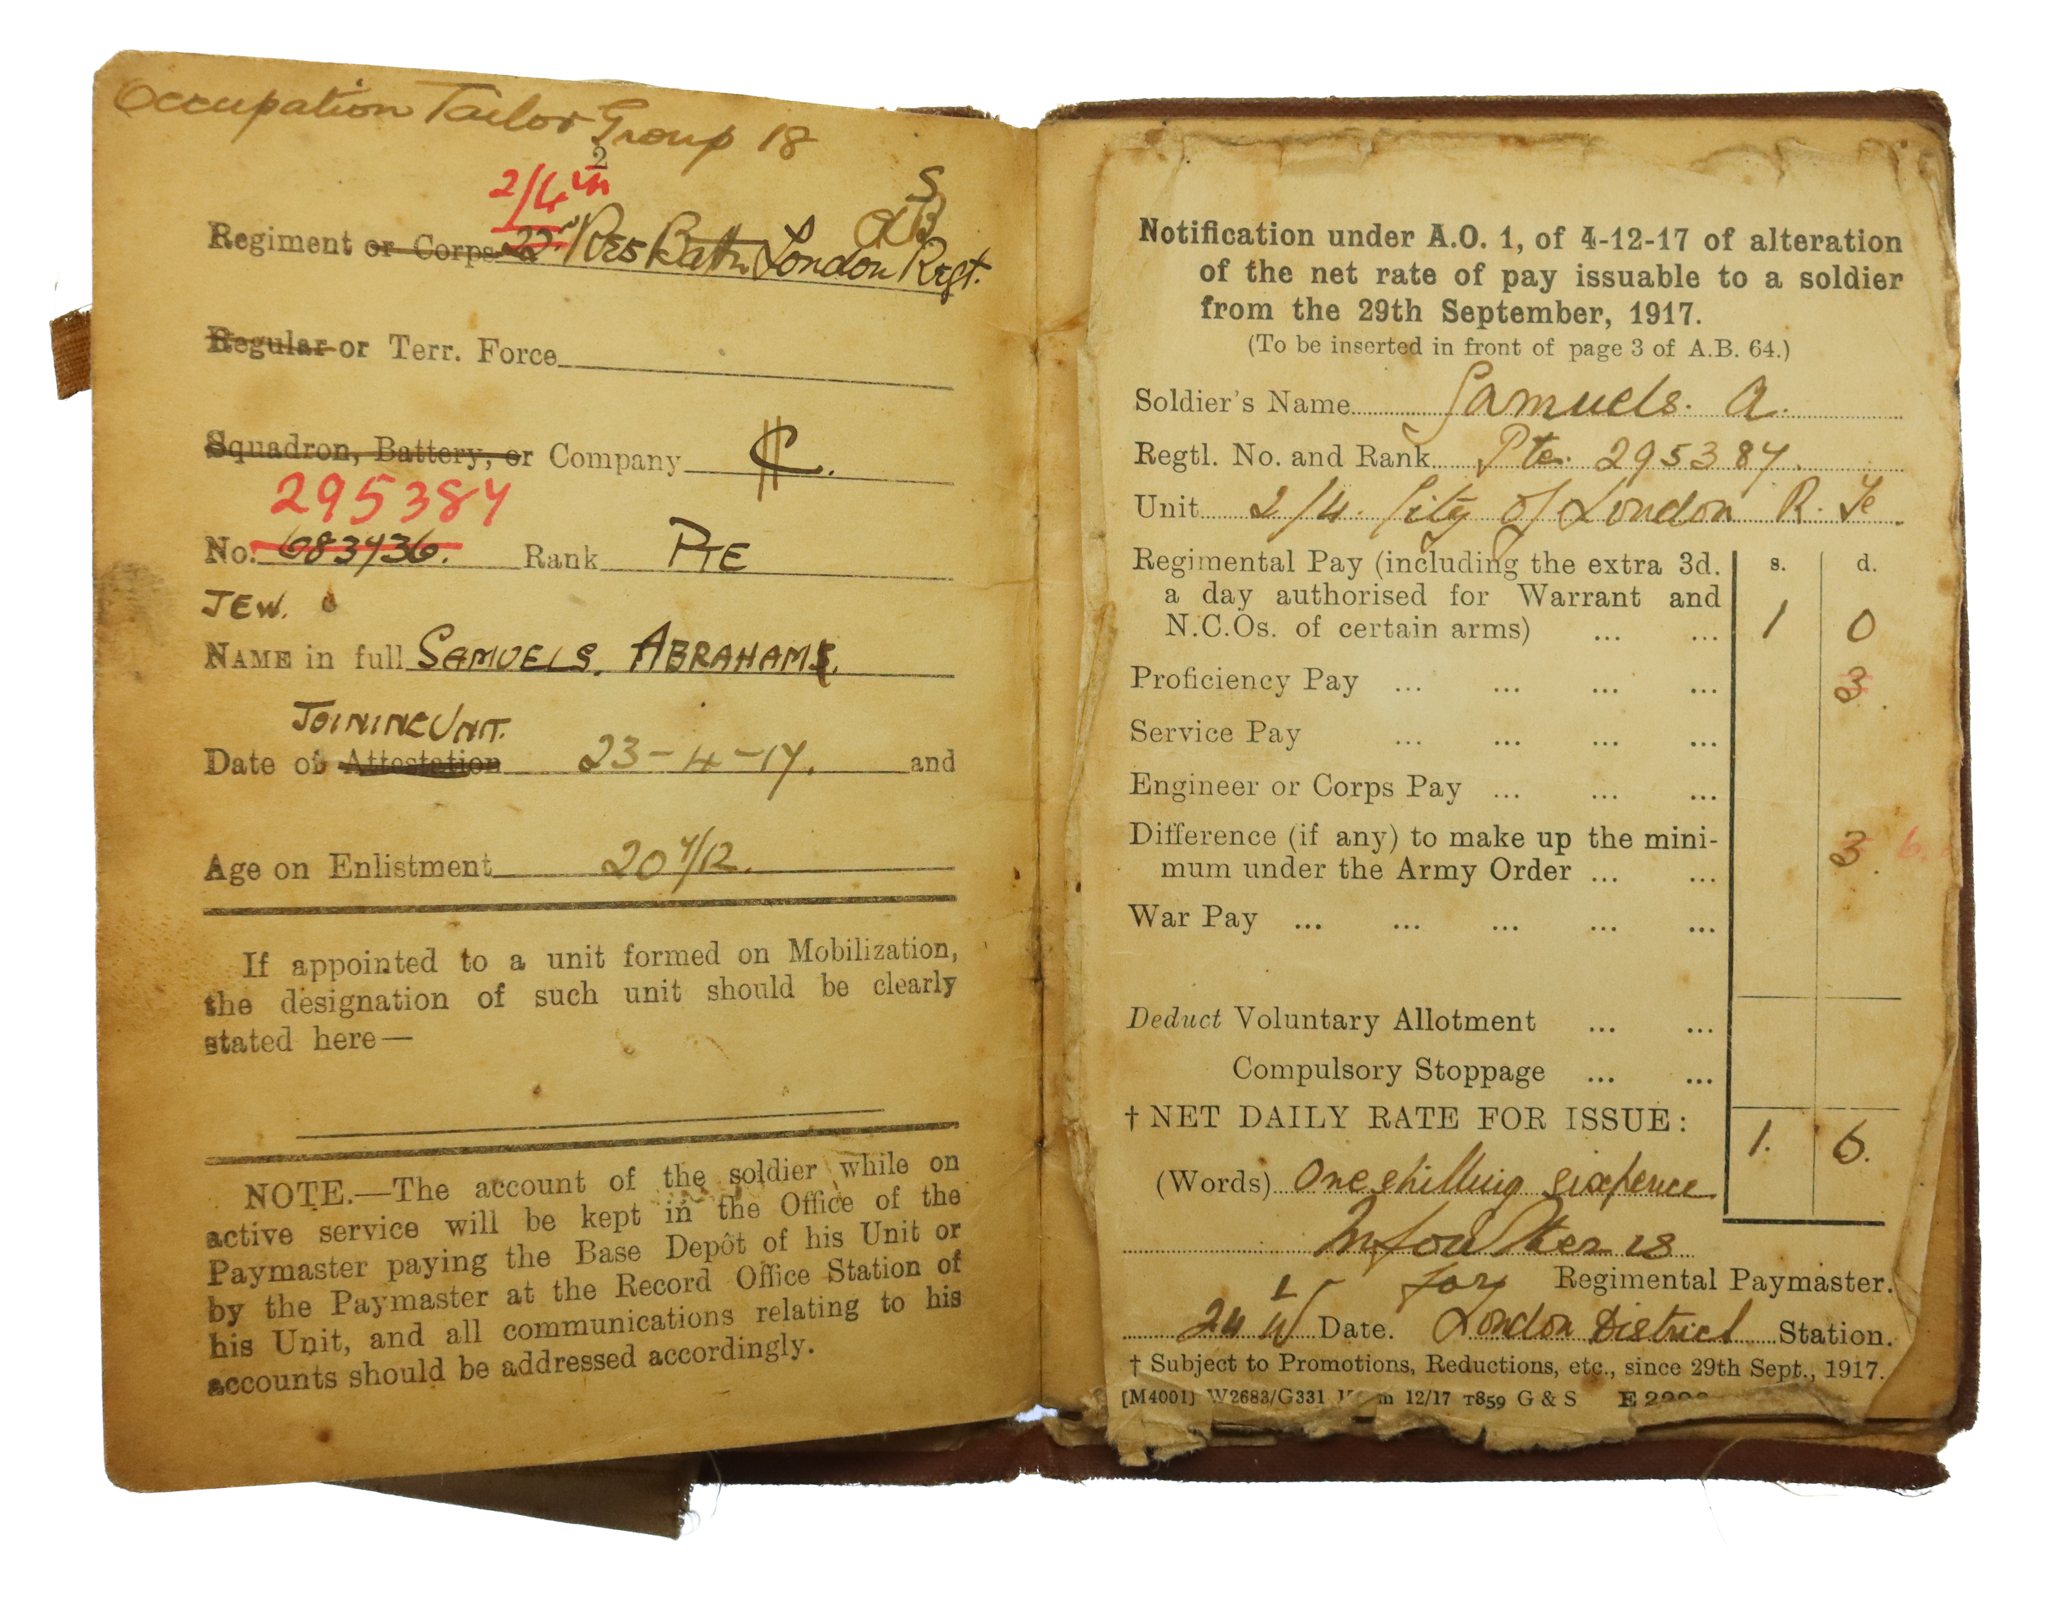 Occupation Tailor Group 18
2
2/4th
S
Regiment or Corps 22nd Res Battn London Regt.
Regular or Terr. Force
Squadron, Battery, or Company C.
295387
No. 683736. Rank PTE
JEW.
NAME in full SAMUELS. ABRAHAMS.
JOINING UNIT.
Date of Attestation 23-4-17. and
Age on Enlistment 20 7/12.
If appointed to a unit formed on Mobilization,
the designation of such unit should be clearly
stated here—
NOTE.—The account of the soldier while on
active service will be kept in the Office of the
Paymaster paying the Base Depôt of his Unit or
by the Paymaster at the Record Office Station of
his Unit, and all communications relating to his
accounts should be addressed accordingly.
Notification under A.O. 1, of 4-12-17 of alteration
of the net rate of pay issuable to a soldier
from the 29th September, 1917.
(To be inserted in front of page 3 of A.B. 64.)
Soldier's Name Samuels. A.
Regtl. No. and Rank Pte. 295387.
Unit 2/4. City of London R.
Regimental Pay (including the extra 3d. s. d.
a day authorised for Warrant and
N.C.Os. of certain arms) ... ... 1 0
Proficiency Pay ... ... ... ... 3.
Service Pay ... ... ... ...
Engineer or Corps Pay ... ... ...
Difference (if any) to make up the mini-
mum under the Army Order ... ... 3. 6.
War Pay ... ... ... ... ...
Deduct Voluntary Allotment ... ...
Compulsory Stoppage ... ...
† NET DAILY RATE FOR ISSUE: 1. 6.
(Words) One shilling sixpence
for Regimental Paymaster.
Date. London District Station.
† Subject to Promotions, Reductions, etc., since 29th Sept., 1917.
[M4001] W2683/G331 m 12/17 T859 G & S